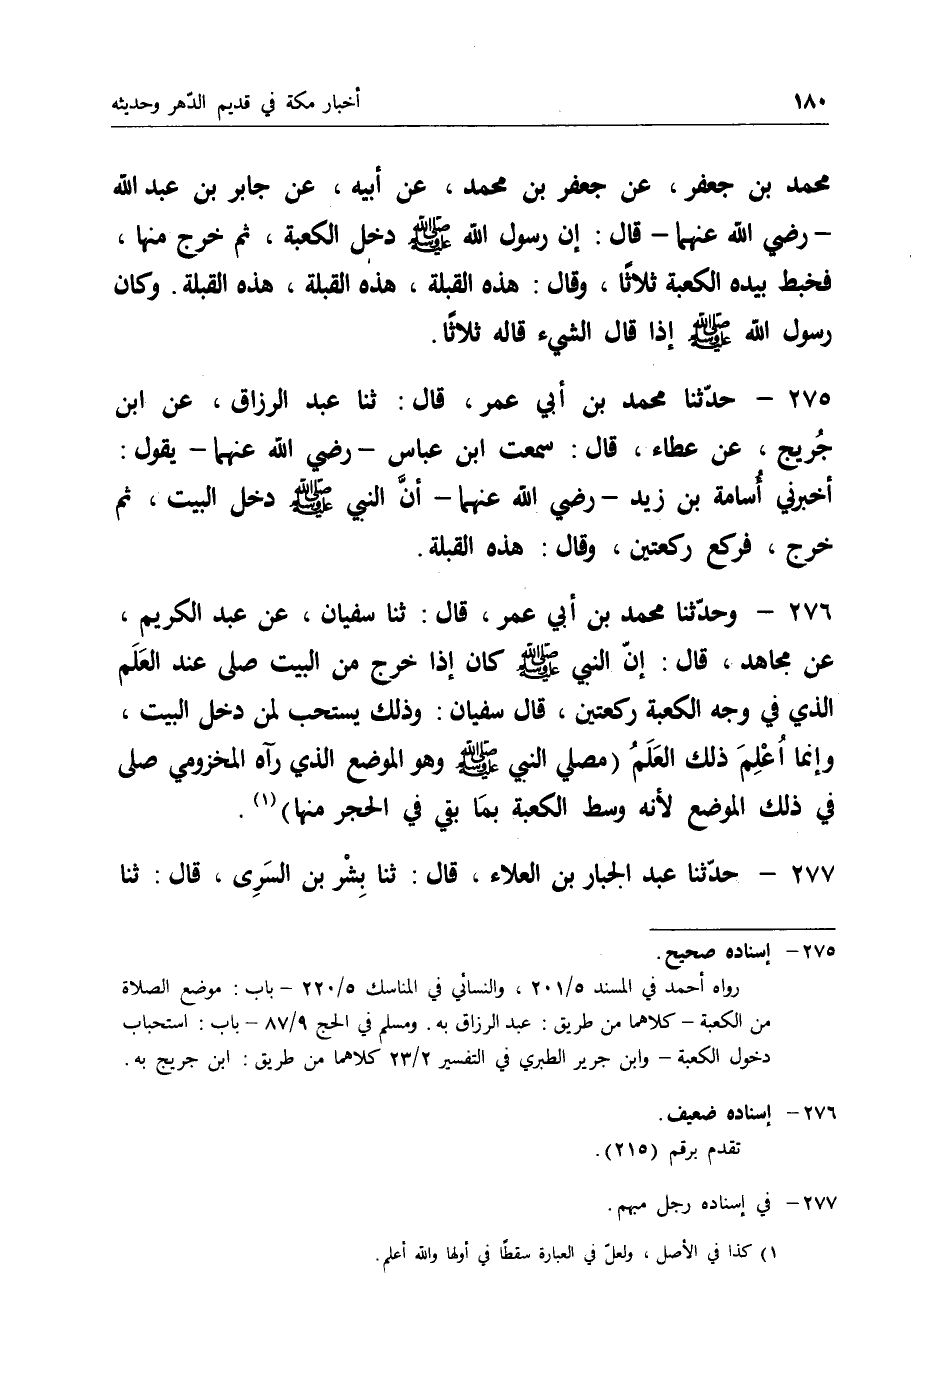 ١٨٠ أخبار مكة في قديم الدّهر وحديثه
محمد بن جعفر ، عن جعفر بن محمد ، عن أبيه ، عن جابر بن عبد الله
– رضي الله عنهما – قال : إن رسول الله ﷺ دخل الكعبة ، ثم خرج منها ،
فخبط بيده الكعبة ثلاثًا ، وقال : هذه القبلة ، هذه القبلة ، هذه القبلة . وكان
رسول الله ﷺ إذا قال الشيء قاله ثلاثًا .
٢٧٥ – حدّثنا محمد بن أبي عمر ، قال : ثنا عبد الرزاق ، عن ابن
جُريج ، عن عطاء ، قال : سمعت ابن عباس – رضي الله عنهما – يقول :
أخبرني أُسامة بن زيد – رضي الله عنهما – أنَّ النبي ﷺ دخل البيت ، ثم
خرج ، فركع ركعتين ، وقال : هذه القبلة .
٢٧٦ – وحدّثنا محمد بن أبي عمر ، قال : ثنا سفيان ، عن عبد الكريم ،
عن مجاهد ، قال : إنّ النبي ﷺ كان إذا خرج من البيت صلى عند العَلَم
الذي في وجه الكعبة ركعتين ، قال سفيان : وذلك يستحب لمن دخل البيت ،
وإنما أُعْلِمَ ذلك العَلَمُ (مصلي النبي ﷺ وهو الموضع الذي رآه المخزومي صلى
في ذلك الموضع لأنه وسط الكعبة بمَا بقي في الحجر منها)(١) .
٢٧٧ – حدّثنا عبد الجبار بن العلاء ، قال : ثنا بِشْر بن السَرِى ، قال : ثنا
٢٧٥– إسناده صحيح .
رواه أحمد في المسند ٢٠١/٥ ، والنسائي في المناسك ٢٢٠/٥ – باب : موضع الصلاة
من الكعبة – كلاهما من طريق : عبد الرزاق به . ومسلم في الحج ٨٧/٩ – باب : استحباب
دخول الكعبة – وابن جرير الطبري في التفسير ٢٣/٢ كلاهما من طريق : ابن جريج به .
٢٧٦– إسناده ضعيف .
تقدم برقم (٢١٥) .
٢٧٧– في إسناده رجل مبهم .
١) كذا في الأصل ، ولعلّ في العبارة سقطًا في أولها والله أعلم .